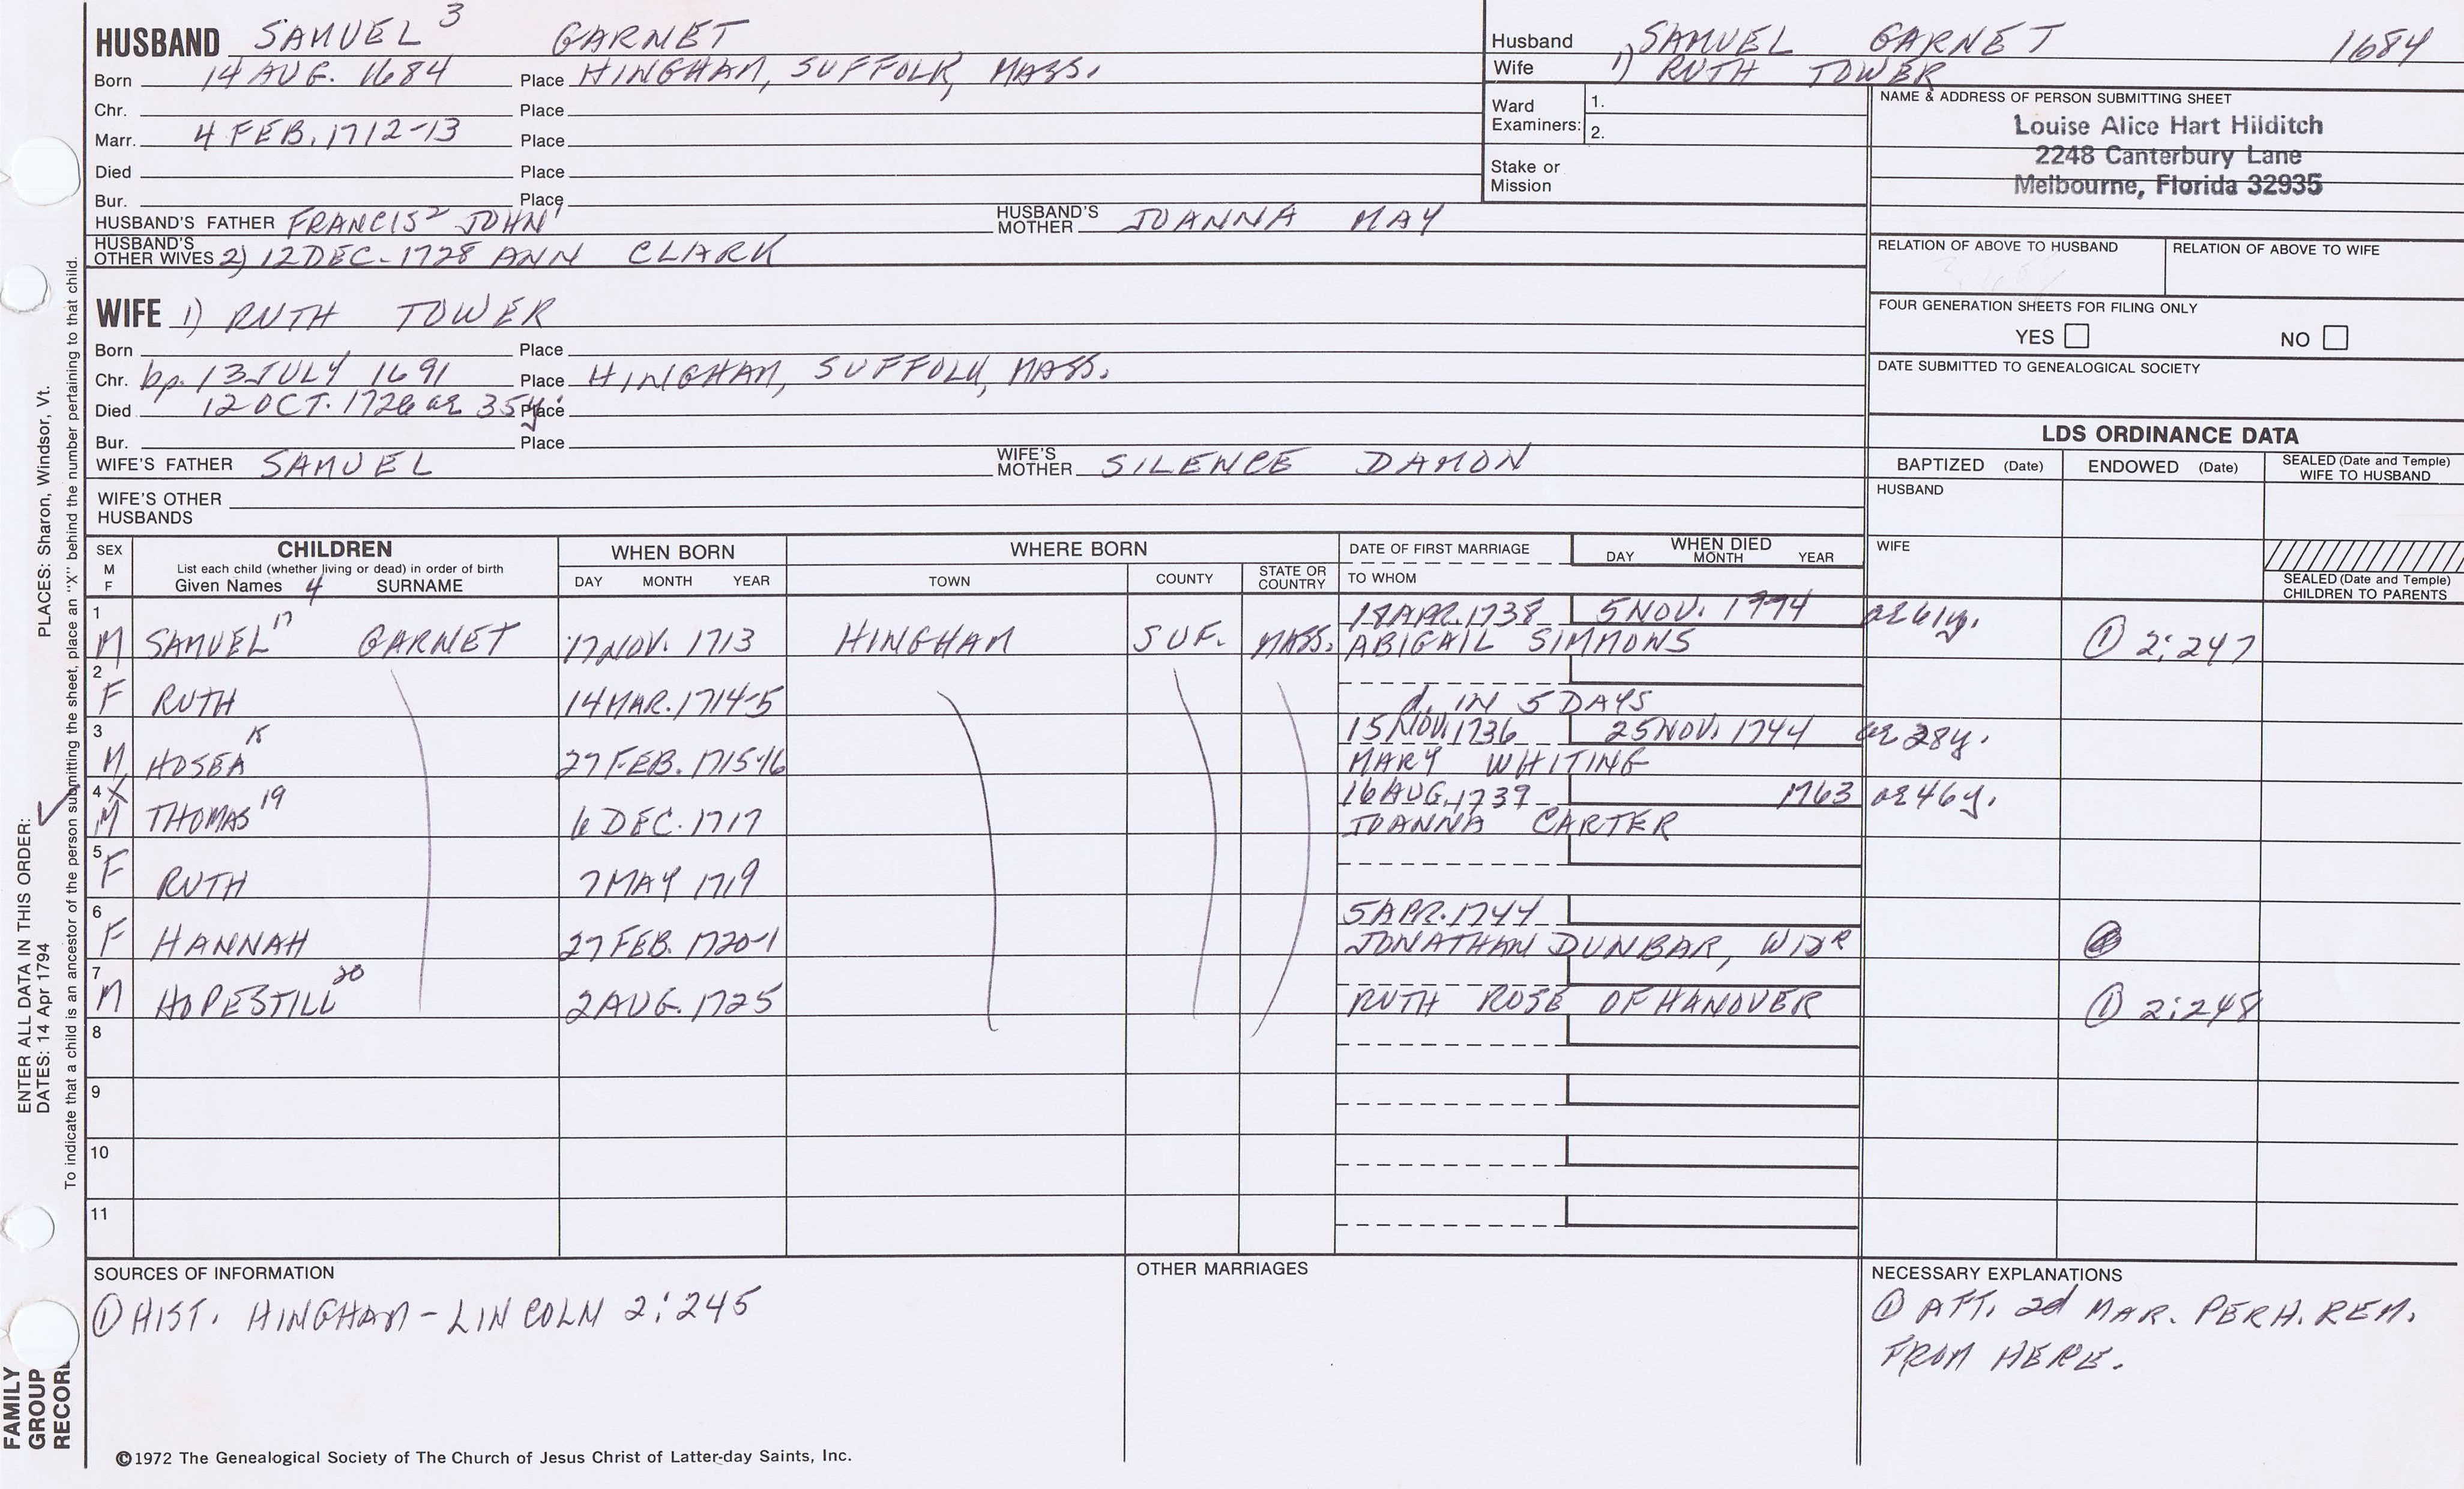 HUSBAND SAMUEL 3 GARNET
Born 14 AUG. 1684 Place HINGHAM, SUFFOLK, MASS.
Chr. Place
Marr. 4 FEB. 1712-13 Place
Died Place
Bur. Place
HUSBAND'S FATHER FRANCIS 2 JOHN 1 HUSBAND'S MOTHER JOANNA MAY
HUSBAND'S OTHER WIVES 2) 12 DEC. 1728 ANN CLARK
WIFE 1) RUTH TOWER
Born Place
Chr. bp. 13 JULY 1691 Place HINGHAM, SUFFOLK, MASS.
Died 12 OCT. 1726 ae 35y. Place
Bur. Place
WIFE'S FATHER SAMUEL WIFE'S MOTHER SILENCE DAMON
WIFE'S OTHER HUSBANDS
Husband 1) SAMUEL GARNET 1684
Wife 1) RUTH TOWER
Ward Examiners: 1.
2.
Stake or Mission
NAME & ADDRESS OF PERSON SUBMITTING SHEET
Louise Alice Hart Hilditch
2248 Canterbury Lane
Melbourne, Florida 32935
RELATION OF ABOVE TO HUSBAND RELATION OF ABOVE TO WIFE
FOUR GENERATION SHEETS FOR FILING ONLY
YES NO
DATE SUBMITTED TO GENEALOGICAL SOCIETY
LDS ORDINANCE DATA
BAPTIZED (Date) ENDOWED (Date) SEALED (Date and Temple) WIFE TO HUSBAND
HUSBAND
WIFE
SEALED (Date and Temple) CHILDREN TO PARENTS
SEX M F CHILDREN List each child (whether living or dead) in order of birth Given Names 4 SURNAME
WHEN BORN DAY MONTH YEAR
WHERE BORN TOWN COUNTY STATE OR COUNTRY
DATE OF FIRST MARRIAGE TO WHOM
WHEN DIED DAY MONTH YEAR
1 18 APR. 1738 5 NOV. 1774 ae 61y.
M SAMUEL 17 GARNET 17 NOV. 1713 HINGHAM SUF. MASS. ABIGAIL SIMMONS ① 2:247
2
F RUTH 14 MAR. 1714-5 d. IN 5 DAYS
3 15 NOV. 1736 25 NOV. 1744 ae 28y.
M HOSEA 18 27 FEB. 1715-16 MARY WHITING
4 X 16 AUG. 1739 1763 ae 46y.
M THOMAS 19 6 DEC. 1717 JOANNA CARTER
5
F RUTH 7 MAY 1719
6 5 APR. 1744
F HANNAH 27 FEB. 1720-1 JONATHAN DUNBAR, WDR
7
M HOPESTILL 20 2 AUG. 1725 RUTH ROSE OF HANOVER ① 2:248
8
9
10
11
SOURCES OF INFORMATION
① HIST. HINGHAM - LINCOLN 2:245
OTHER MARRIAGES
NECESSARY EXPLANATIONS
① AFT. 2d MAR. PERH. REM.
FROM HERE.
©1972 The Genealogical Society of The Church of Jesus Christ of Latter-day Saints, Inc.
FAMILY
GROUP
RECORD
ENTER ALL DATA IN THIS ORDER:
DATES: 14 Apr 1794 PLACES: Sharon, Windsor, Vt.
To indicate that a child is an ancestor of the person submitting the sheet, place an "X" behind the number pertaining to that child.